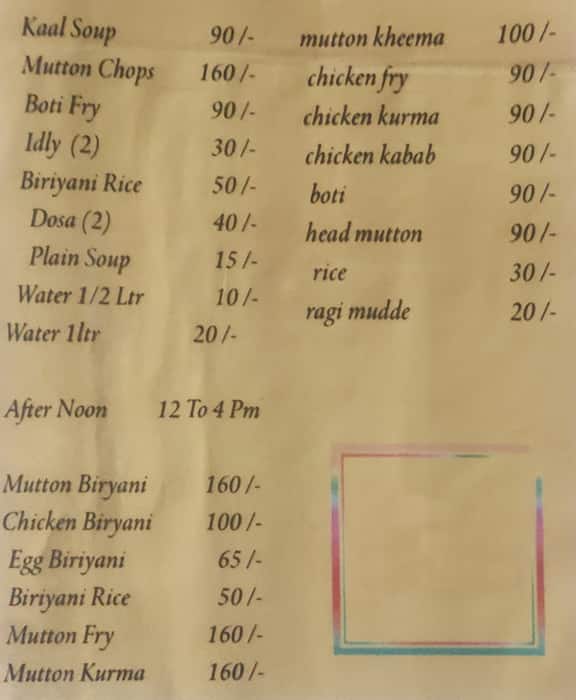 Kaal Soup 90/-
Mutton Chops 160/-
Boti Fry 90/-
Idly (2) 30/-
Biriyani Rice 50/-
Dosa (2) 40/-
Plain Soup 15/-
Water 1/2 Ltr 10/-
Water 1ltr 20/-
After Noon 12 To 4 Pm
Mutton Biryani 160/-
Chicken Biryani 100/-
Egg Biriyani 65/-
Biriyani Rice 50/-
Mutton Fry 160/-
Mutton Kurma 160/-
mutton kheema 100/-
chicken fry 90/-
chicken kurma 90/-
chicken kabab 90/-
boti 90/-
head mutton 90/-
rice 30/-
ragi mudde 20/-